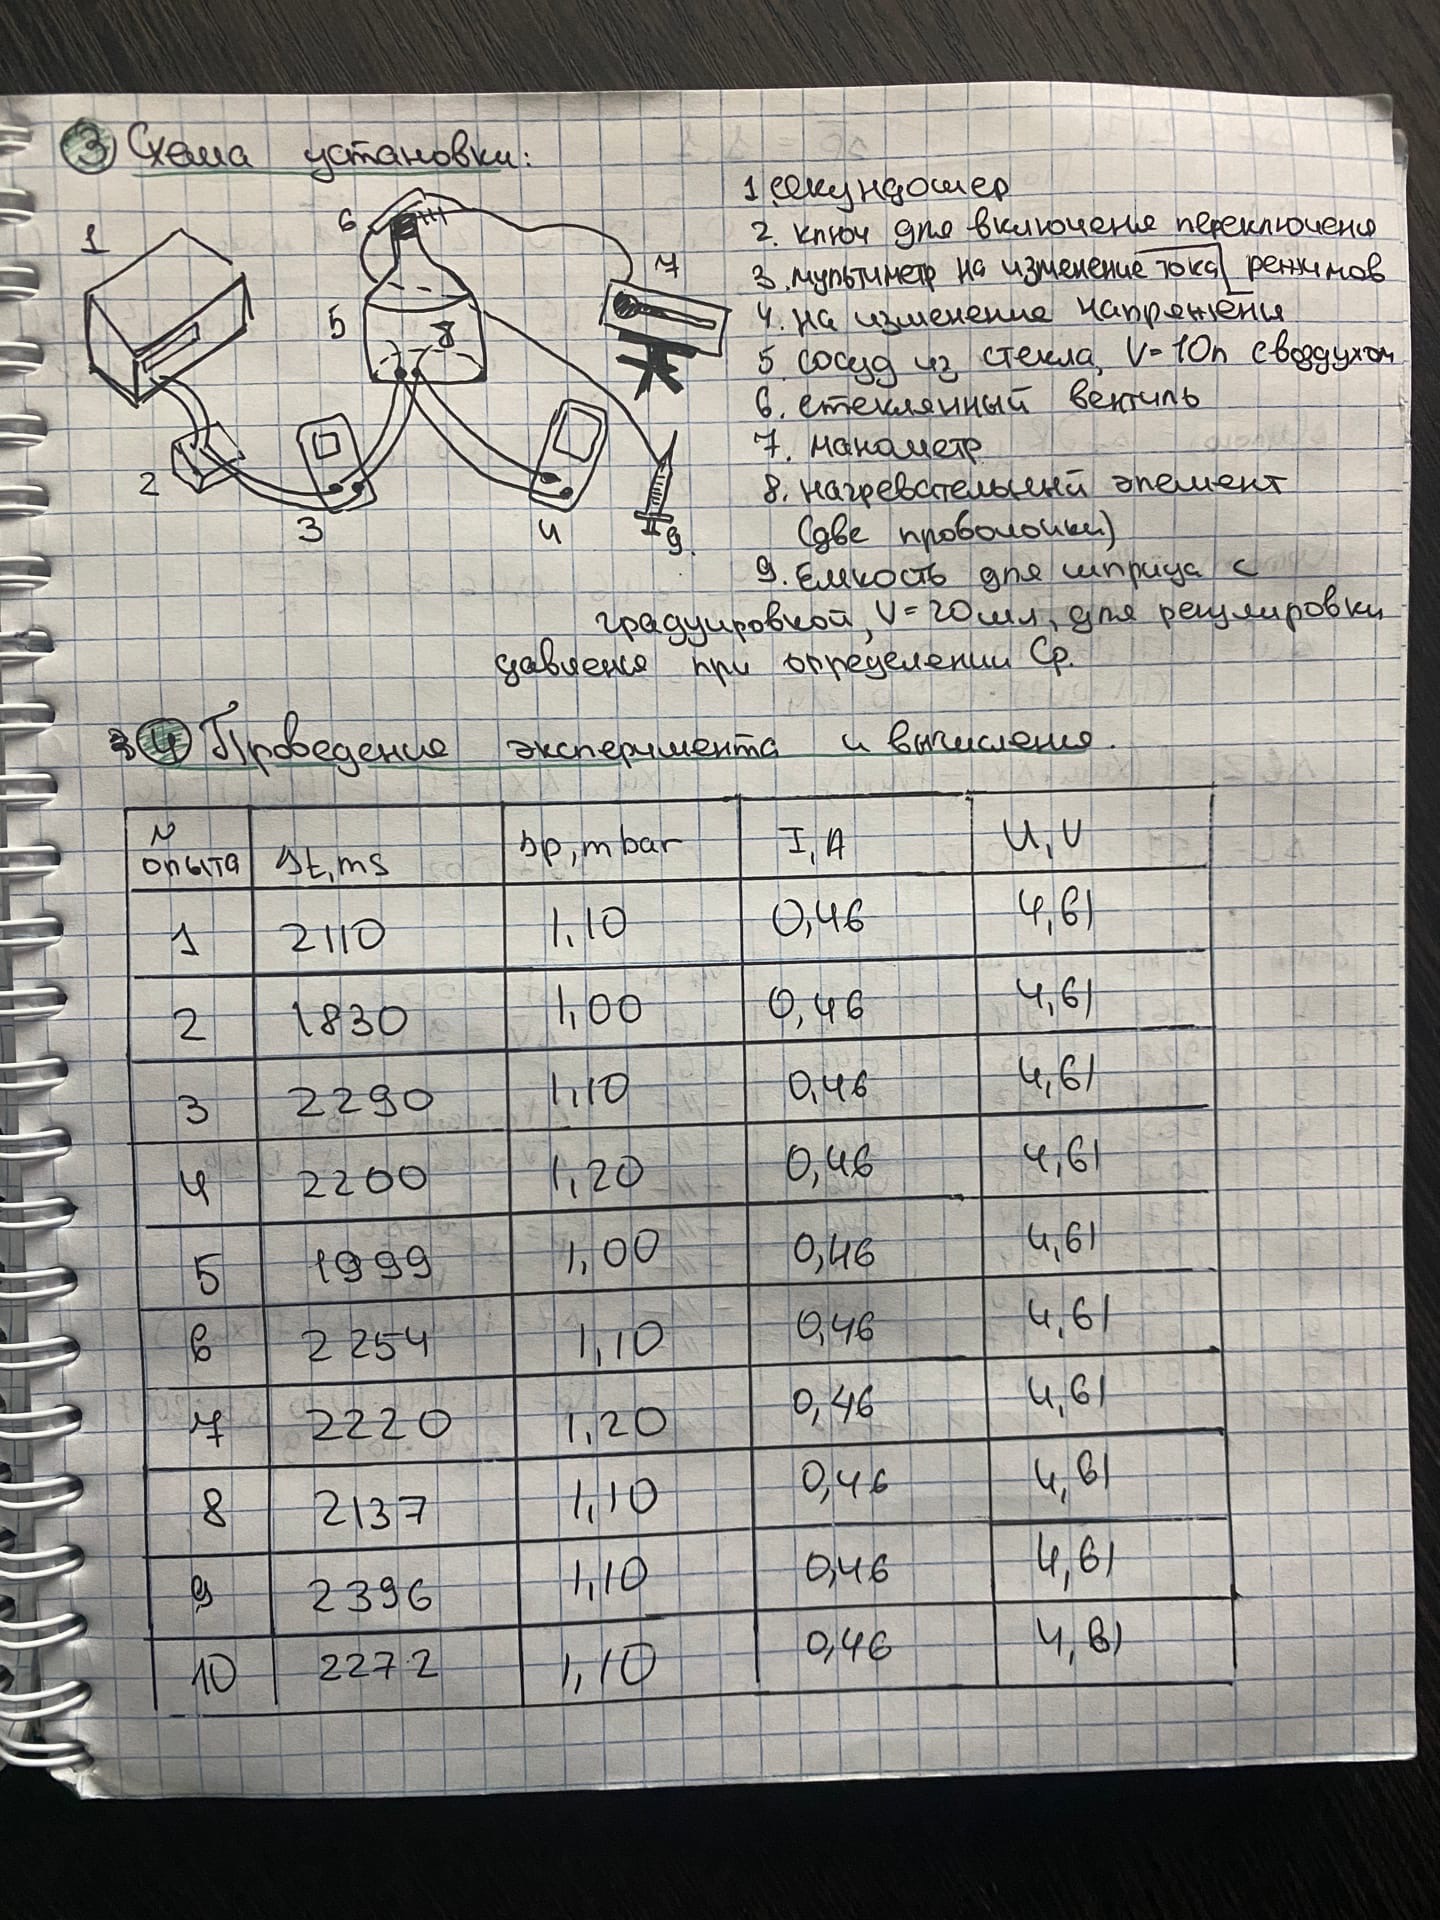 3 Схема установки:
1 секундомер
2. ключ для включение переключеня
3. мультиметр на изменение тока режимов
4. на изменение напряженя
5 сосуд из стекла, V=10л с воздухом
6. стеклянный вентиль
7. манометр
8. нагревательный элемент
(две проволочки)
9. Емкость для шприца с
градуировкой, V=20мл, для регулировки
давленя при определении Cp.
1
2
3
4
5
6
7
8
9.
4 Проведение эксперимента и вычисленя.
N опыта Δt, ms Δp, mbar I, A U, V
1 2110 1,10 0,46 4,61
2 1830 1,00 0,46 4,61
3 2290 1,10 0,46 4,61
4 2200 1,20 0,46 4,61
5 1999 1,00 0,46 4,61
6 2254 1,10 0,46 4,61
7 2220 1,20 0,46 4,61
8 2137 1,10 0,46 4,61
9 2396 1,10 0,46 4,61
10 2272 1,10 0,46 4,61